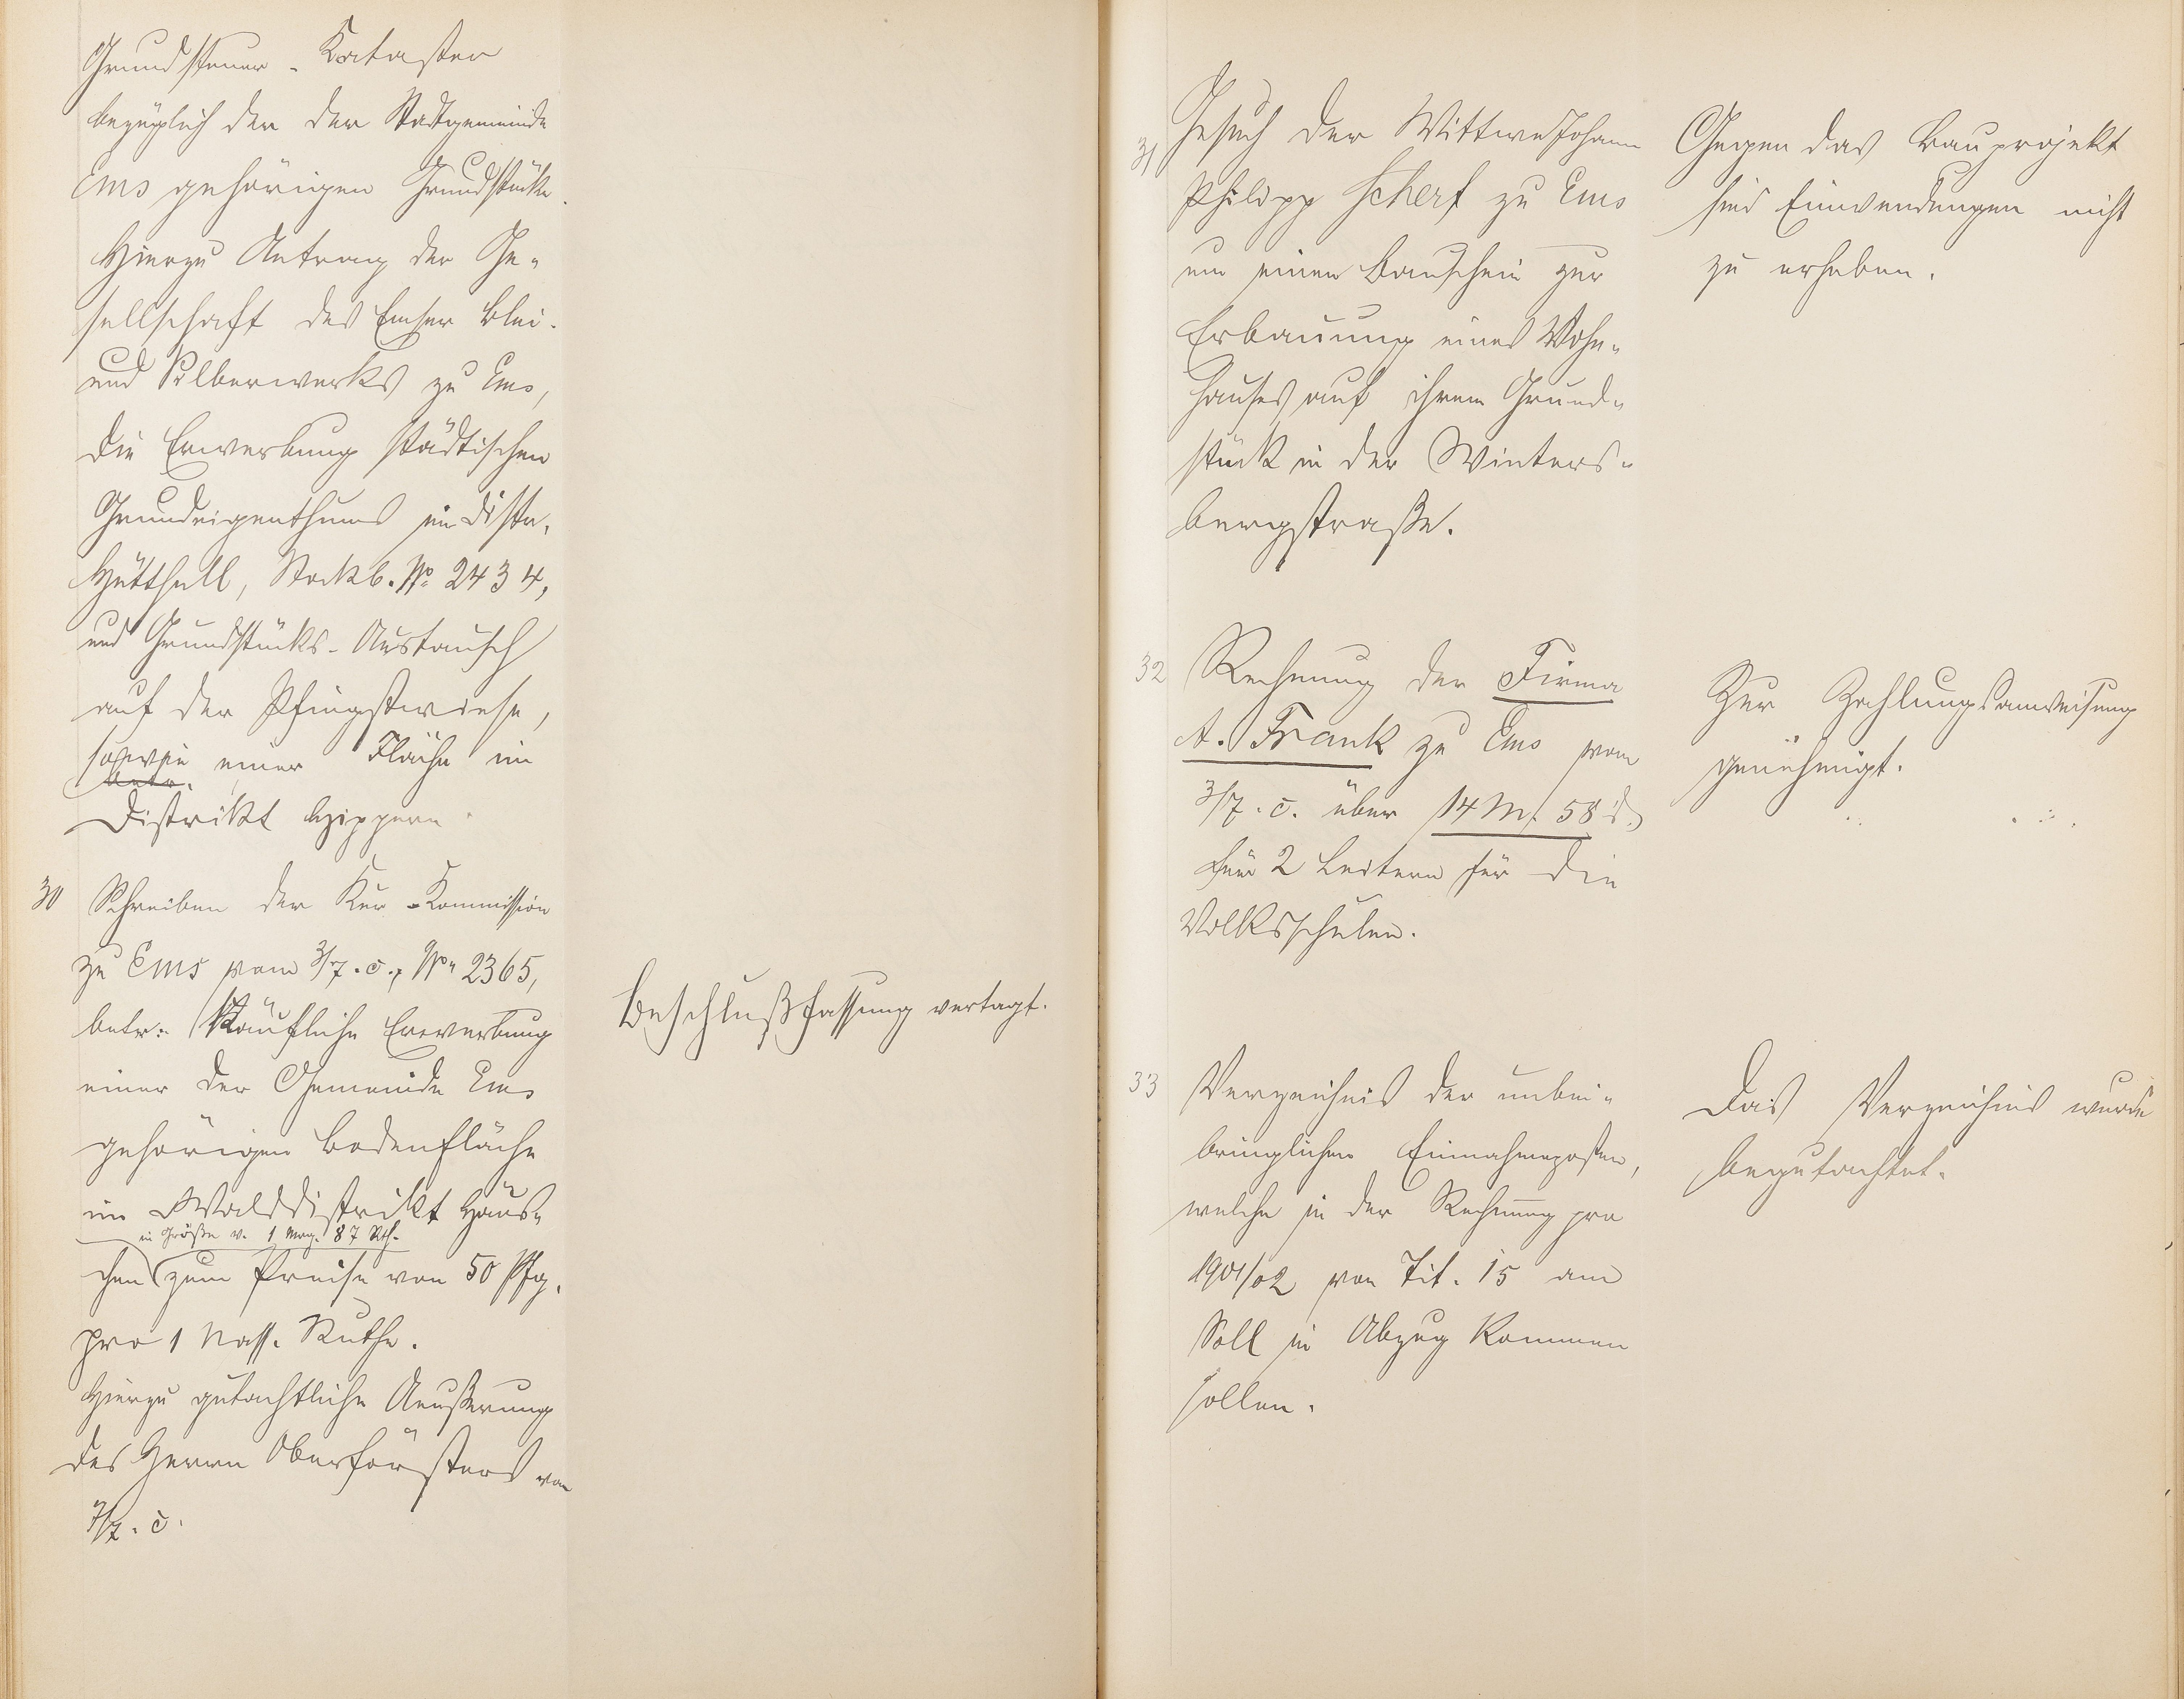 Grundsteuer-Kataster
bezüglich der der Stadtgemeinde
Ems gehörigen Grundstücke.
Hierzu Antrag der Ge-
sellschaft des Emser Blei-
und Silberwerks zu Ems,
die Erwerbung städtischen
Grundeigenthums im Distr.
Hütthell, Stockb. No 2434,
und Grundstücks-Austausch
auf der Pfingstwiese,
sowie einer Fläche im
betr.
Distrikt Hippern.
30 Schreiben der Kur-Kommission
zu Ems vom 3/7. c., No 2365,
betr: Käufliche Erwerbung
einer der Gemeinde Ems
gehörigen Bodenfläche
im Walddistrikt Häus-
in Größe v. 1 Mrg. 87 Rth.
chen zum Preise von 50 Pfg.
pro 1 Nass. Ruthe.
Hierzu gutachtliche Aeußerung
des Herrn Oberförsters vom
7/7. c.
Beschlußfassung vertagt.
31 Gesuch der Wittwe Johann
Philipp Scherf zu Ems
um einen Bauschein zur
Erbauung eines Wohn-
hauses auf ihrem Grund-
stück in der Winters-
bergstraße.
Gegen das Bauprojekt
sind Einwendungen nicht
zu erheben.
32 Rechnung der Firma
A. Frank zu Ems vom
3/7. c. über 14 M. 58 d.
für 2 Leitern für die
Volksschulen.
Zur Zahlungsanweisung
genehmigt.
33 Verzeichnis der unbei-
bringlichen Einnahmeposten,
welche in der Rechnung pro
1901/02 von Tit. 15 am
Soll in Abzug kommen
sollen.
Das Verzeichnis wurde
begutachtet.